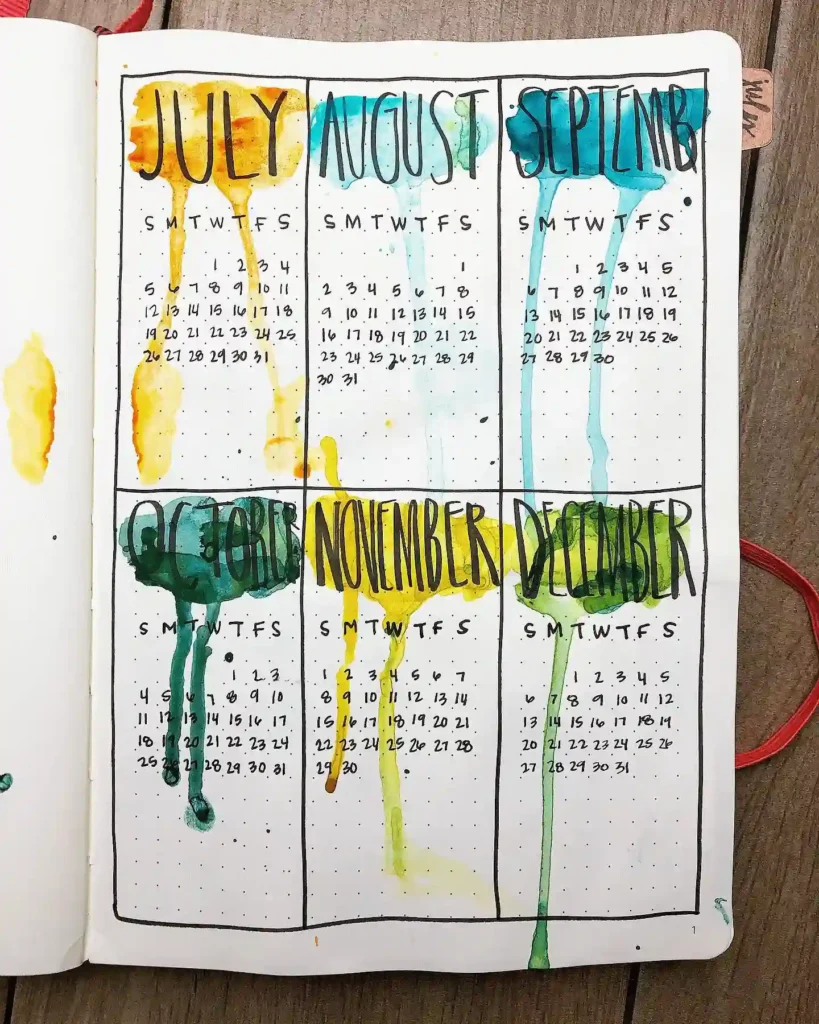 JULY
S M T W T F S
1 2 3 4
5 6 7 8 9 10 11
12 13 14 15 16 17 18
19 20 21 22 23 24 25
26 27 28 29 30 31
AUGUST
S M T W T F S
1
2 3 4 5 6 7 8
9 10 11 12 13 14 15
16 17 18 19 20 21 22
23 24 25 26 27 28 29
30 31
SEPTEMB
S M T W T F S
1 2 3 4 5
6 7 8 9 10 11 12
13 14 15 16 17 18 19
20 21 22 23 24 25 26
27 28 29 30
OCTOBER
S M T W T F S
1 2 3
4 5 6 7 8 9 10
11 12 13 14 15 16 17
18 19 20 21 22 23 24
25 26 27 28 29 30 31
NOVEMBER
S M T W T F S
1 2 3 4 5 6 7
8 9 10 11 12 13 14
15 16 17 18 19 20 21
22 23 24 25 26 27 28
29 30
DECEMBER
S M T W T F S
1 2 3 4 5
6 7 8 9 10 11 12
13 14 15 16 17 18 19
20 21 22 23 24 25 26
27 28 29 30 31
1